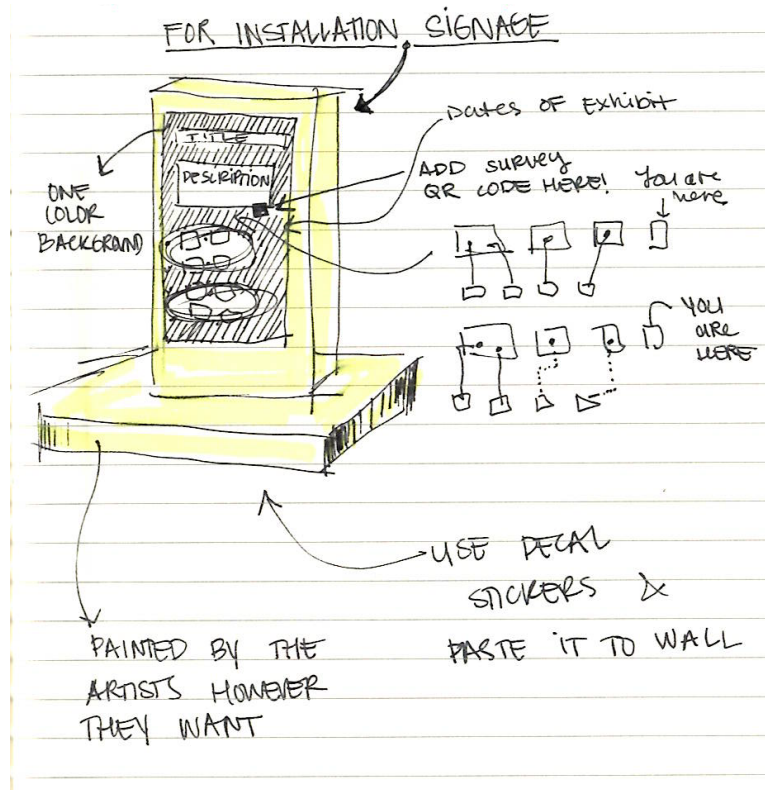 FOR INSTALLATION SIGNAGE
TITLE
DESCRIPTION
ONE
COLOR
BACKGROUND
DATES OF EXHIBIT
ADD SURVEY
QR CODE HERE!
You are
here
YOU
ARE
HERE
USE DECAL
STICKERS &
PASTE IT TO WALL
PAINTED BY THE
ARTISTS HOWEVER
THEY WANT